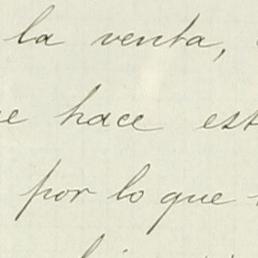 la venta,
hace est
por lo que